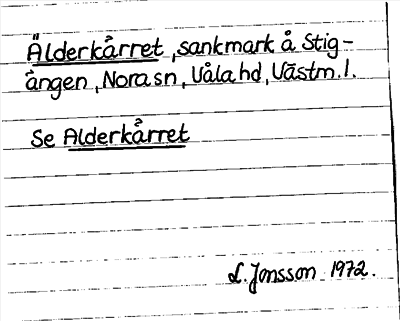 Älderkårret, sankmark å Stig-
ången, Nora sn, Våla hd, Västm. l.
Se Alderkårret
L. Jonsson 1972.